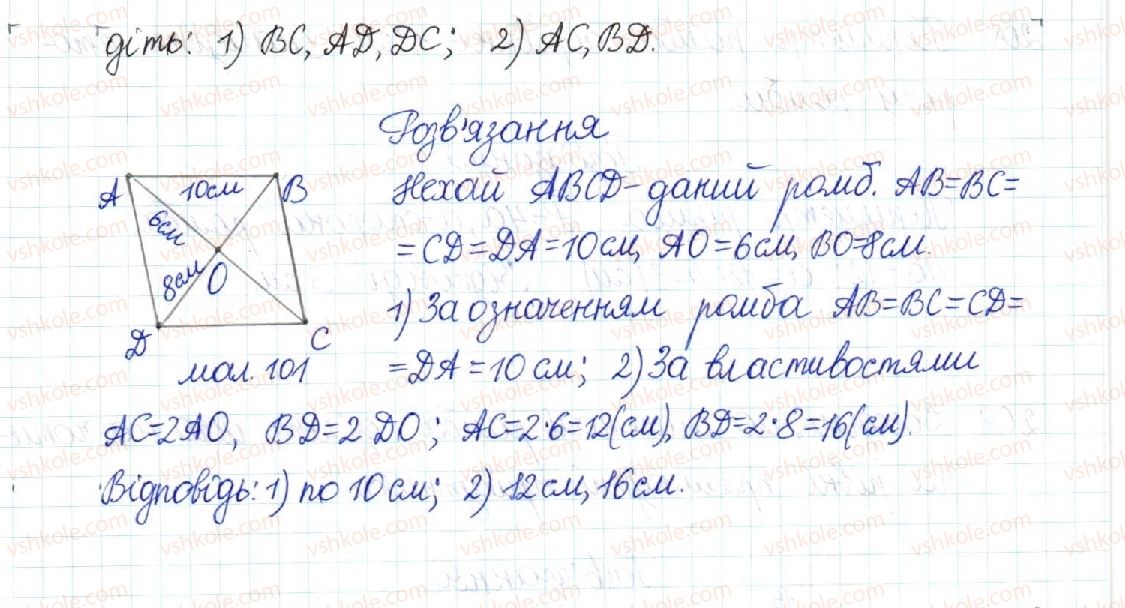 діть: 1) BC, AD, DC; 2) AC, BD.
Розв'язання
A 10см B
6см
8см O
D C
мал. 101
Нехай ABCD-даний ромб. AB=BC=
=CD=DA=10см, AO=6см, BO=8см.
1) За означенням ромба AB=BC=CD=
=DA=10см; 2) За властивостями
AC=2AO, BD=2DO; AC=2·6=12(см), BD=2·8=16(см).
Відповідь: 1) по 10см; 2) 12см, 16см.